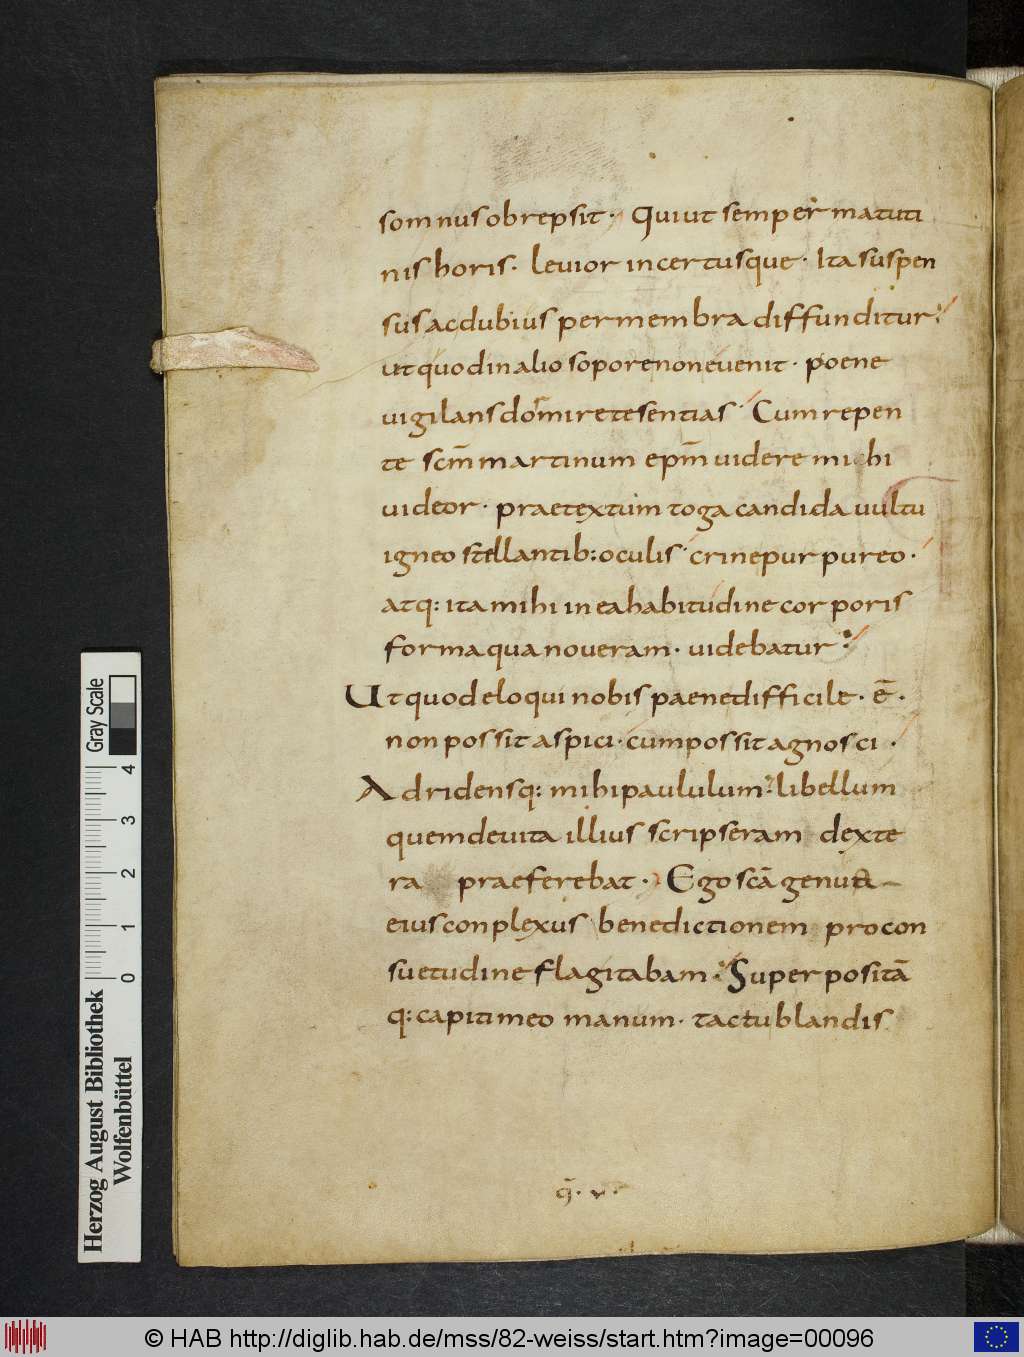 somnus obrepsit · Qui ut semper matuti
nis horis · levior incertusque · Ita suspen
sus ac dubius per membra diffunditur
ut quod in alio sopore non evenit · poene
vigilans dormire te sentias · Cum repen
te scm̄ martinum epm̄ videre michi
videor · praetextum toga candida vultu
igneo stellantib: oculis · crine purpureo ·
atq: ita mihi in ea habitudine corporis
forma qua noveram · videbatur
Ut quod eloqui nobis paene difficile · ē ·
non possit aspici · cum possit agnosci ·
Adridensq: mihi paululum libellum
quem de vita illius scripseram dexte
ra praeferebat · Ego scā genua
eius conplexus benedictionem pro con
suetudine flagitabam · Superpositā
q: capiti meo manum · tactu blandis
q̄ · v ·
Gray Scale
4
3
2
1
0
Herzog August Bibliothek
Wolfenbüttel
© HAB http://diglib.hab.de/mss/82-weiss/start.htm?image=00096